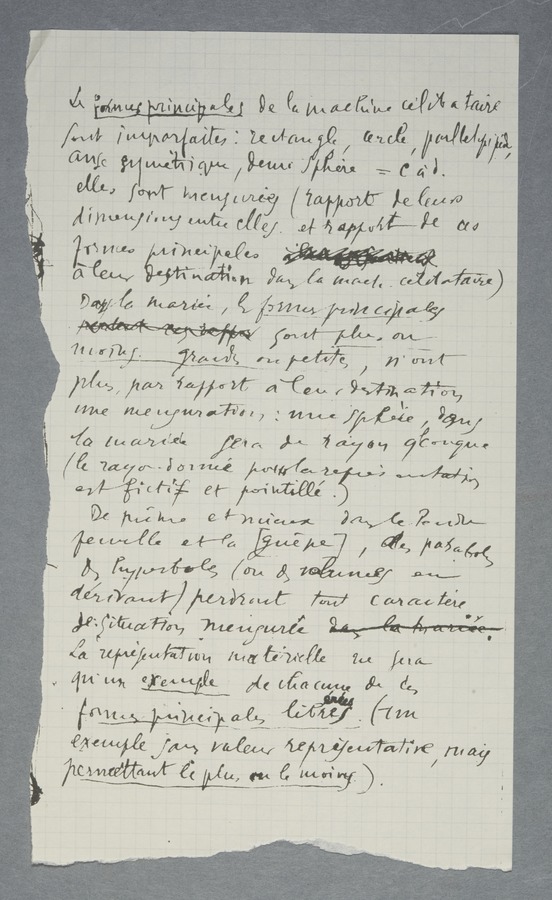 Les formes principales de la machine célibataire
sont imparfaites : rectangle, cercle, parallélépipède,
anse symétrique, demi sphère = c à d.
elles sont mensurées (rapport de leurs
dimensions entre elles. et rapport de ces
formes principales
à leur destination dans la mach. célibataire)
Dans la mariée, les formes principales
sont plus ou
moins grandes ou petites, n'ont
plus, par rapport à leur destination
une mensuration : une sphère, dans
la mariée sera de rayon qconque
(le rayon donné pour la représentation
est fictif et pointillé.)
De même et mieux dans le Pendu
femelle et la [guêpe], des paraboles
des hyperboles (ou des volumes en
dérivant) perdront tout caractère
de situation mensurée dans la mariée.
La représentation matérielle ne sera
qu'un exemple de chacune de ces
formes principales libres. (un
exemple sans valeur représentative, mais
permettant le plus ou le moins).